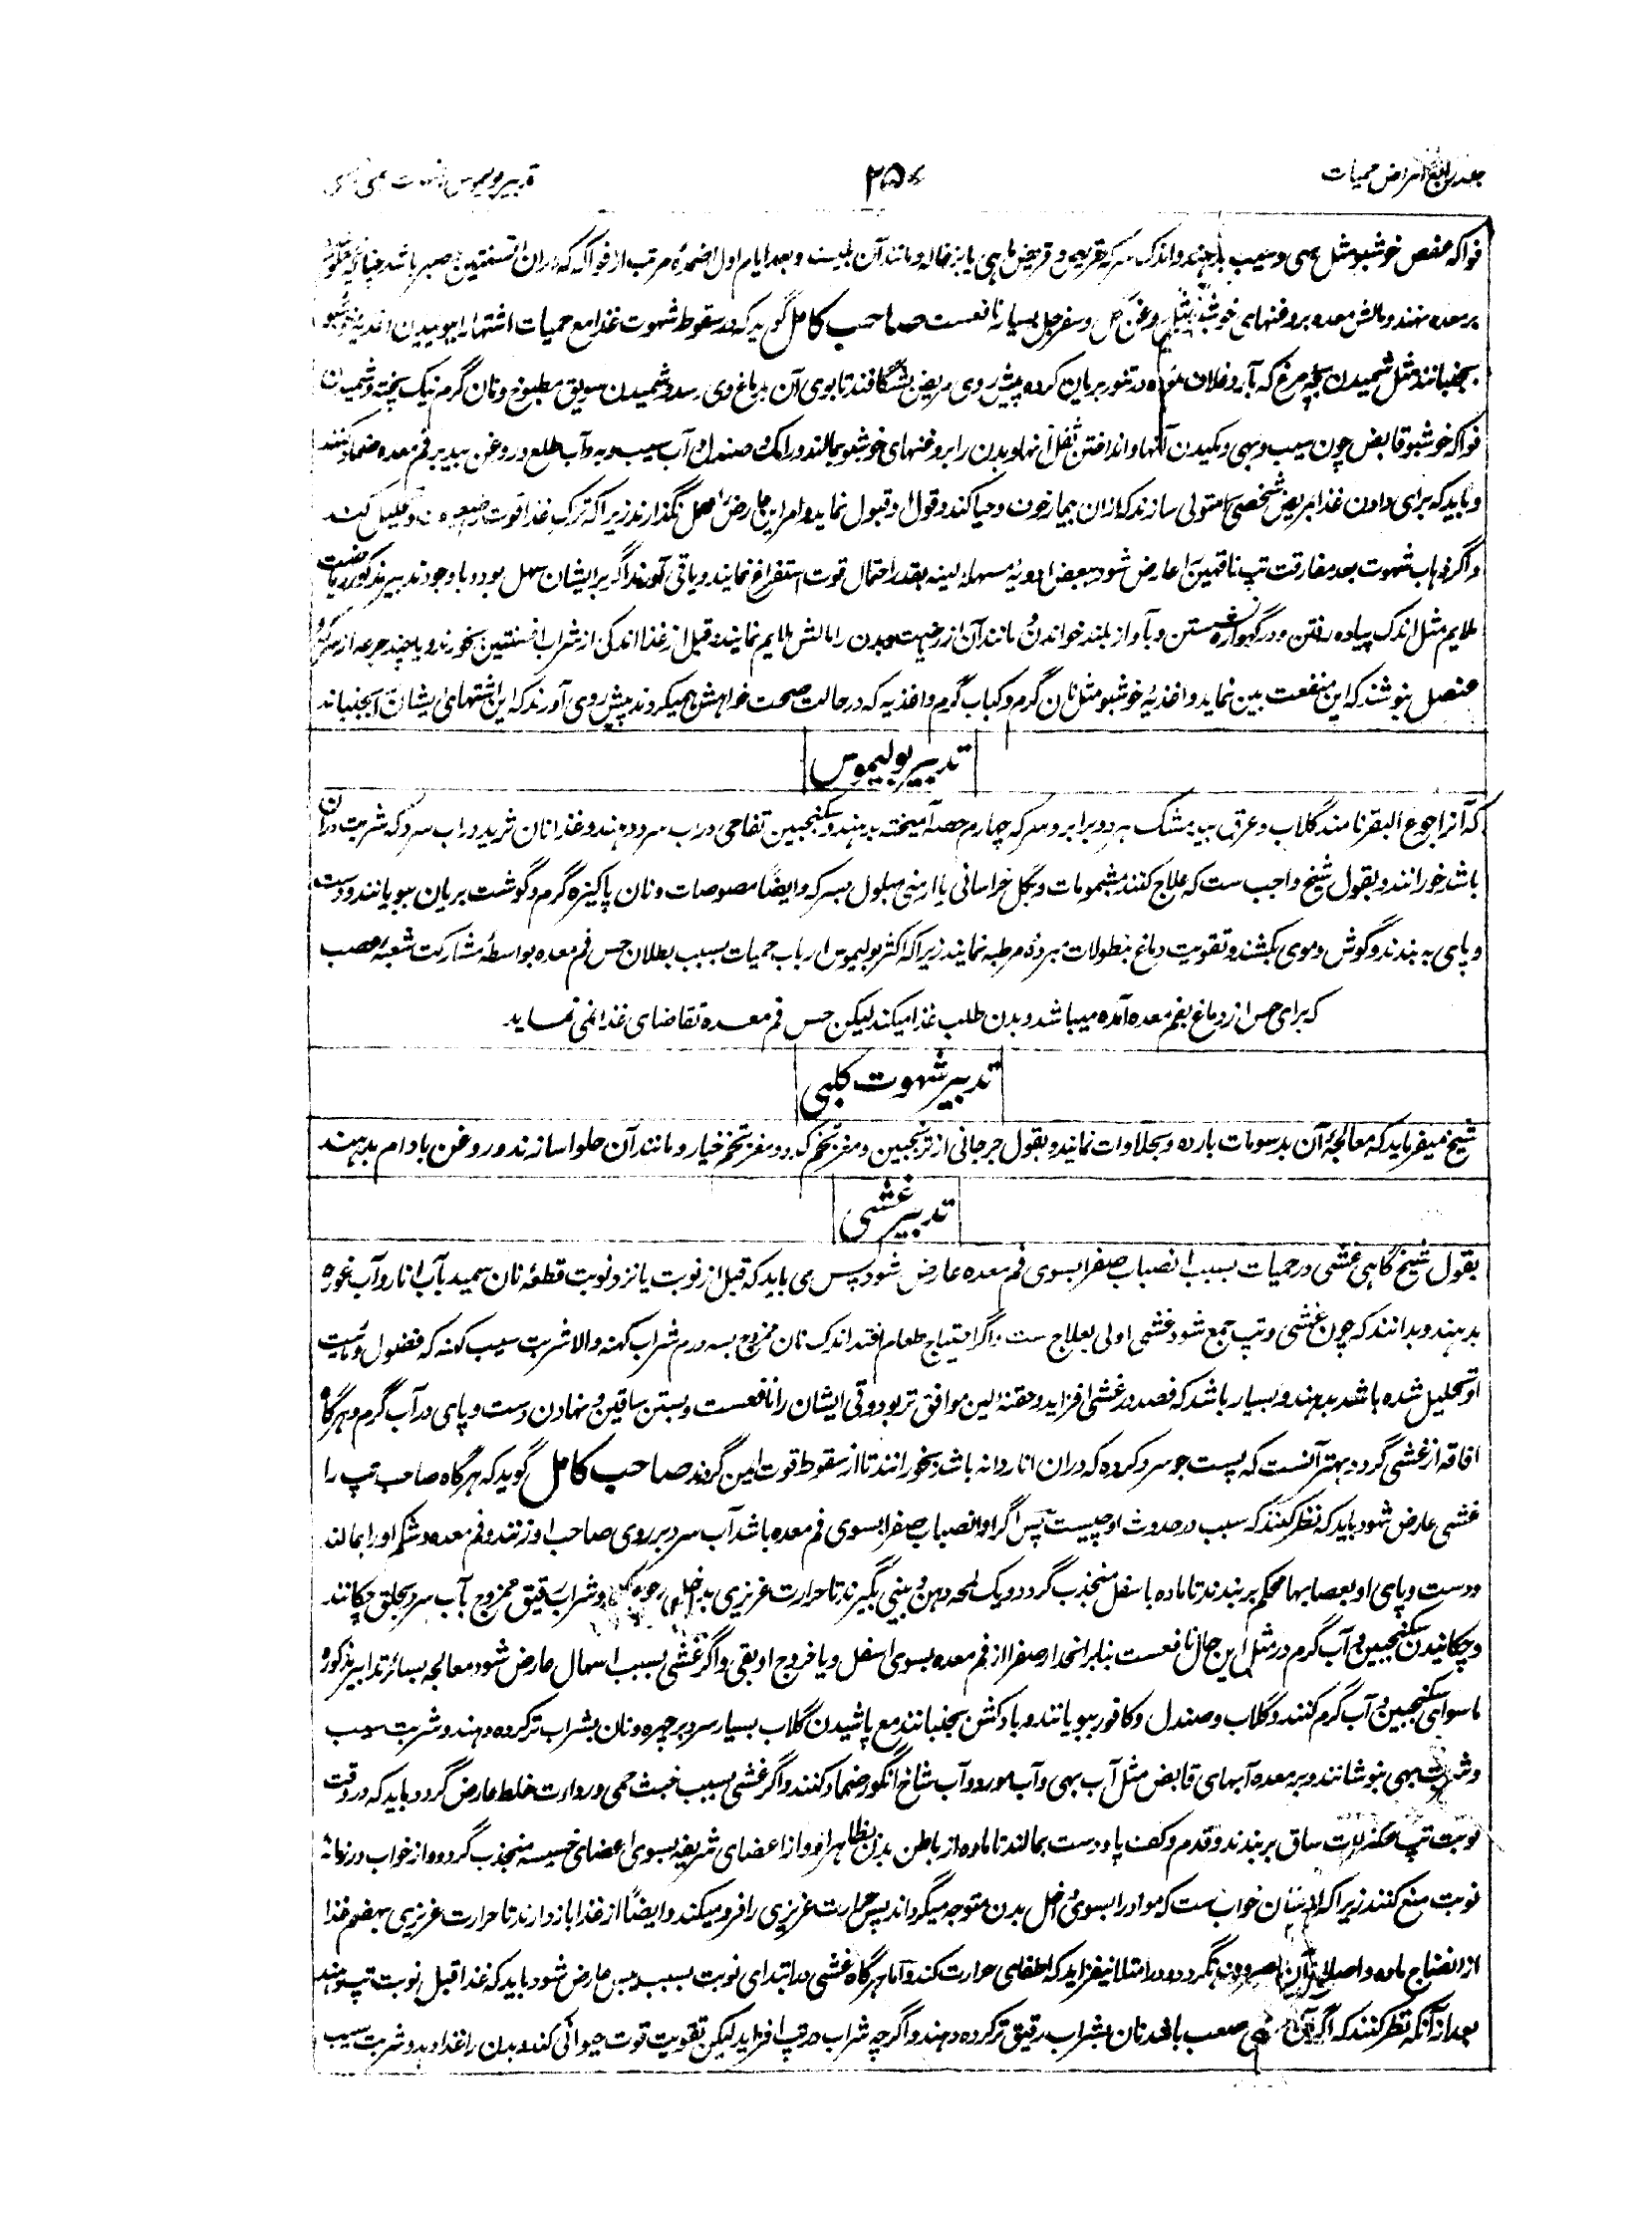 جلد رابع امراض حمیات
۲۵۷
تدبیر بولیموس شهوت کلبی غشی
فواکه عفص خوشبو مثل بهی و سیب بدهند و اندک سرکه و قریص ماهی یا بزغاله و مانند آن بلیسند و بعد ایام اول اضمدهٔ مرتب از فواکه که دران افسنتین و صبر باشد
بر معده نهند و مالش معده بروغنهای خوشبو مثل روغن گل و سفرجل بسیار نافعست صاحب کامل گوید که در سقوط شهوت غذا مع حمیات اشتها را ببوییدن اغذیه خوشبو
بجنبانند مثل شمیدن بچه مرغ که بآرد غلاف نموده در تنور بریان کرده پیش روی مریض بشگافند تا بوی آن بدماغ وی رسد و شمیدن سویق مطبوخ و نان گرم نیک پخته و شمیدن
فواکه خوشبو قابض چون سیب و بهی و مکیدن آنها و انداختن ثفل آنها و بدن را بروغنهای خوشبو بمالند و رامک و صندل و آب سیب و به و آب طلع و روغن بید بر فم معده ضماد کنند
و باید که برای دادن غذا بمریض شخصی را متولی سازند که ازان بیمار خوف و حیا کند و قول او قبول نماید و امر این عارض را مهمل نگذارند زیرا که ترک غذا قوت را ضعیف و تحلیل کند
و اگر ذهاب شهوت بعد مفارقت تپ ناقهین را عارض شود ببعض ادویه مسهله لینه بقدر احتمال قوت استفراغ نمایند و باقی آورند اگر بر ایشان سهل بود و با وجود تدبیر مذکور ریاضت
ملایم مثل اندک پیاده رفتن و در گهواره نشستن و بآواز بلند خواندن و مانند آن ازین جهت و بدن را مالش ملایم نمایند و قبل از غذا اندکی از شراب افسنتین بخورند و یا چند جرعه از سرکه
عنصل بنوشند که این منفعت بین نماید و اغذیه خوشبو مثل نان گرم و کباب گرم و اغذیه که در حالت صحت خواهش میکردند پیش روی آورند که این اشتهای ایشان را بجنباند
تدبیر بولیموس
که آنرا جوع البقر نامند گلاب و عرق بید مشک هر دو برابر و سرکه چهارم حصه آمیخته بدهند و سکنجبین تفاحی در آب سرد دهند و غذا نان ثرید در آب سرد که شربت دران
باشد خورانند و بقول شیخ واجب ست که علاج کنند بمشمومات و بگل خراسانی یا ارمنی مبلول بسرکه و ایضاً مصوصات و نان پاکیزه گرم و گوشت بریان ببویانند و دست
و پای به بندند و گوش و موی بکشند و تقویت دماغ بنطولات مبردهٔ مرطبه نمایند زیرا که اکثر بولیموس ارباب حمیات بسبب بطلان حس فم معده بواسطهٔ مشارکت شعبهٔ عصب
که برای حس از دماغ بفم معده آمده میباشد و بدن طلب غذا میکند لیکن حس فم معده تقاضای غذا نمی نماید
تدبیر شهوت کلبی
شیخ میفرماید که معالجهٔ آن بدسومات بارده و بحلاوات نمایند و بقول جرجانی از ترنجبین و مغز تخم کدو و مغز تخم خیار و مانند آن حلوا سازند و روغن بادام بدهند
تدبیر غشی
بقول شیخ گاهی غشی در حمیات بسبب انصباب صفرا بسوی فم معده عارض شود پس می باید که قبل از نوبت یا نزد نوبت قطعهٔ نان سمید بآب انار و آب غوره
بدهند و بدانند که چون غشی و تپ جمع شود غشی اولی بعلاج ست و اگر احتیاج طعام افتد اندک نان ممزوج بسه درم شراب کهنه و الا شربت سیب کهنه که فضول و مائیت
او تحلیل شده باشد بدهند و بسیار باشد که فصد در غشی افزاید و حقنه الین موافق تر بود و قی ایشان را نافعست و بستن ساقین و نهادن دست و پای در آب گرم و هرگاه
افاقه از غشی گردد بهتر آنست که پست جو سرد کرده که دران انار دانه باشد بخورانند تا از سقوط قوت ایمن گردند صاحب کامل گوید که هرگاه صاحب تپ را
غشی عارض شود باید که نظر کنند که سبب در حدوث او چیست پس اگر او انصباب صفرا بسوی فم معده باشد آب سرد بر روی صاحب او زنند و فم معده و شکم او را بمالند
و دست و پای او بعصابها محکم بر بندند تا ماده باسفل منجذب گردد و یک لمحه دهن و بینی بگیرند تا حرارت غریزی بداخل رجوع کند و شراب رقیق ممزوج بآب سرد بحلق چکانند
و چکانیدن سکنجبین و آب گرم در مثل این حال نافعست بنابر انحدار صفرا از فم معده بسوی اسفل و یا خروج او بقی و اگر غشی بسبب اسهال عارض شود معالجه بسائر تدابیر مذکوره
ماسوای سکنجبین و آب گرم کنند و گلاب و صندل و کافور ببویانند و بادکش بجنبانند مع پاشیدن گلاب بسیار سرد بر چهره و نان بشراب تر کرده دهند و شربت سیب
و شربت بهی بنوشانند و بر معده آبهای قابض مثل آب بهی و آب مورد و آب شاخ انگور ضماد کنند و اگر غشی بسبب خبث حمی و رداءت خلط عارض گردد باید که در وقت
نوبت تپ عضلات ساق بر بندند و قدم و کف پا و دست بمالند تا ماده از باطن بدن بظاهر او و از اعضای شریفه بسوی اعضای خسیسه منجذب گردد و از خواب در زمانهٔ
نوبت منع کنند زیرا که از شان خواب ست که مواد را بسوی داخل بدن متوجه میگرداند پس حرارت غریزی را فرو میکند و ایضاً از غذا باز دارند تا حرارت غریزی بهضم غذا
از انضاج ماده و اصلاح آن مصروف نگردد و در امتلا نیفزاید که اطفای حرارت کند و اما هرگاه غشی در ابتدای نوبت بسبب یبس عارض شود باید که غذا قبل نوبت تپ دهند
بعد ازانکه نظر کنند که اگر آن صعب باشد نان بشراب رقیق تر کرده دهند و اگرچه شراب در تپ افزاید لیکن تقویت قوت حیوانی کند و بدن را غذا دهد و شربت سیب